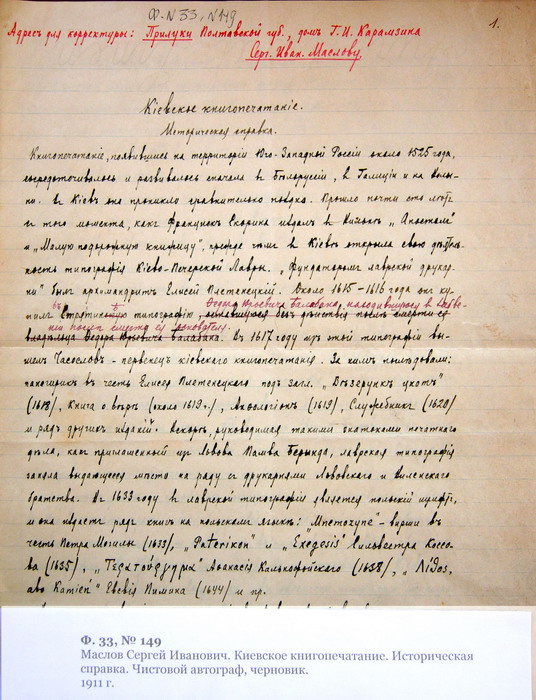 Ф. N 33, N 149
1.
Адресъ для корректуры: Прилуки Полтавской губ., домъ Г. И. Карамзина
Серг. Иван. Маслову.
Кіевское книгопечатаніе.
Историческая справка.
Книгопечатаніе, появившись на территоріи Юго-Западной Россіи около 1525 года,
сосредоточивалось и развивалось сначала въ Бѣлоруссіи, въ Галиціи и на Волы-
ни. Въ Кіевъ оно проникло сравнительно поздно. Прошло почти сто лѣтъ
съ того момента, какъ Францискъ Скорина издалъ въ Вильнѣ „Апостолъ"
и „Малую подорожную книжицу", прежде чѣмъ въ Кіевѣ открыла свою дѣятель-
ность типографія Кіево-Печерской Лавры. „Фундаторомъ лаврской друкар-
ни" былъ архимандритъ Елисей Плетенецкій. Около 1615-1616 года онъ ку-
въ Ѳедора Юрьевича Балабана, находившуюся въ
пилъ Стрятинскую типографію, оставшуюся безъ дѣйствія послѣ смерти ея
послѣ смерти ея основателя.
владѣльца Ѳедора Юрьевича Балабана. Въ 1617 году изъ этой типографіи вы-
шелъ Часословъ - первенецъ кіевскаго книгопечатанія. За нимъ послѣдовали:
панегирикъ въ честь Елисея Плетенецкаго подъ загл. „Визерункъ цнотъ"
(1618), Книга о вѣрѣ (около 1619 г.), Анѳологіонъ (1619), Служебникъ (1620)
и рядъ другихъ изданій. Вскорѣ, руководимая такими знатоками печатнаго
дѣла, какъ приглашенный изъ Львова Памва Берында, лаврская типографія
заняла выдающееся мѣсто на ряду съ друкарнями Львовскаго и Виленскаго
братства. Въ 1633 году въ лаврской типографіи является польскій шрифтъ,
и она издаетъ рядъ книгъ на польскомъ языкѣ: „Mnemozyne" - вирши въ
честь Петра Могилы (1633), „Paterikon" и „Exegesis" Сильвестра Коссо-
ва (1635), „Τερατούργημα" Аѳанасія Кальнофойскаго (1638), „Λίθos,
abo Kamień" Евсевія Пимина (1644) и пр.
Ф. 33, № 149
Маслов Сергей Иванович. Киевское книгопечатание. Историческая
справка. Чистовой автограф, черновик.
1911 г.